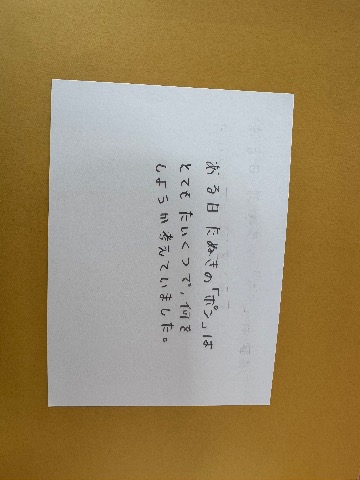 ある日 たぬきの「ポン」は
とても たいくつで、何を
しようか 考えていました。